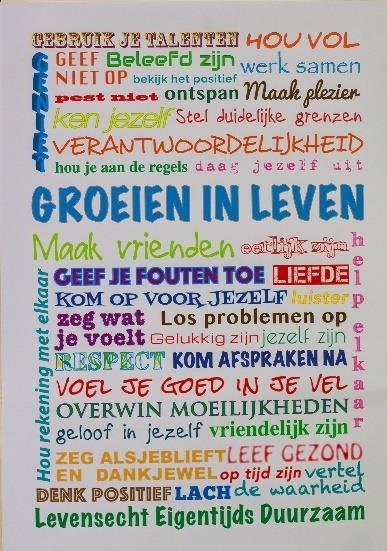 GEBRUIK JE TALENTEN HOU VOL
GENIET
GEEF Beleefd zijn
NIET OP bekijk het positief werk samen
pest niet ontspan Maak plezier
ken jezelf Stel duidelijke grenzen
VERANTWOORDELIJKHEID
hou je aan de regels daag jezelf uit
GROEIEN IN LEVEN
Maak vrienden eerlijk zijn
help elkaar
Hou rekening met elkaar
GEEF JE FOUTEN TOE LIEFDE
KOM OP VOOR JEZELF luister
zeg wat Los problemen op
je voelt Gelukkig zijn jezelf zijn
RESPECT KOM AFSPRAKEN NA
VOEL JE GOED IN JE VEL
OVERWIN MOEILIJKHEDEN
geloof in jezelf vriendelijk zijn
ZEG ALSJEBLIEFT LEEF GEZOND
EN DANKJEWEL op tijd zijn vertel
DENK POSITIEF LACH de waarheid
Levensecht Eigentijds Duurzaam